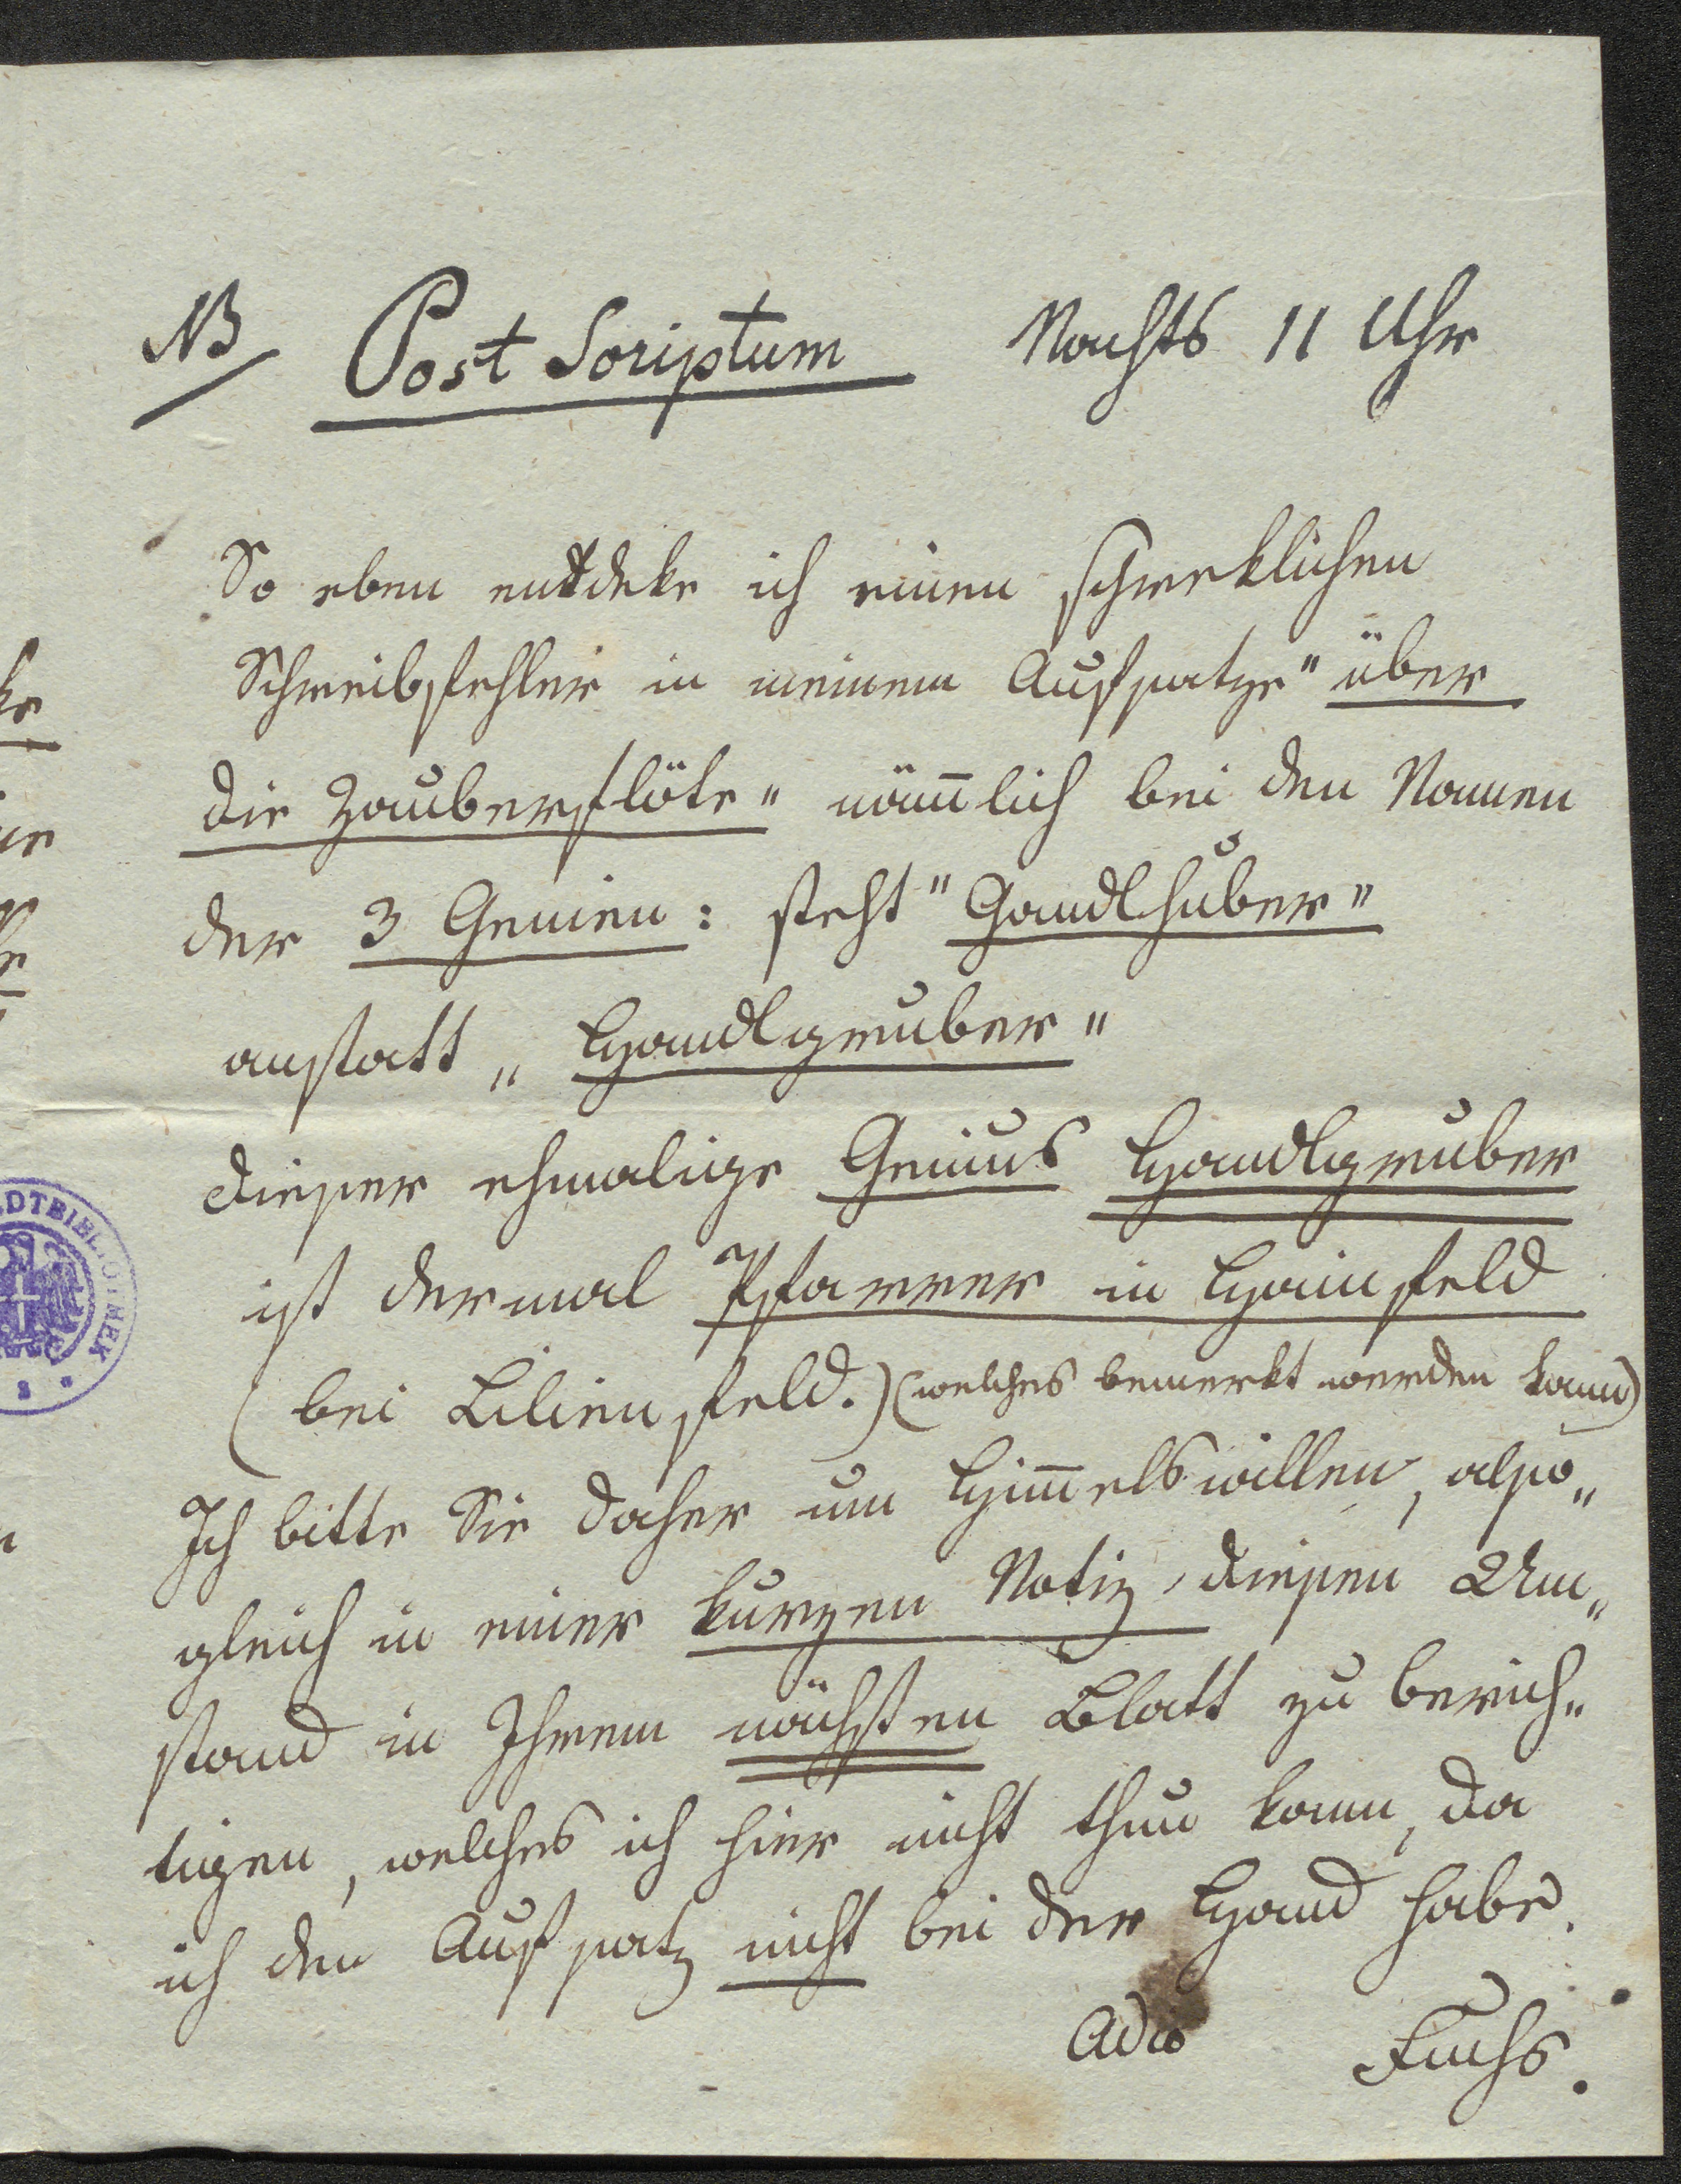 NB Post Scriptum Nachts 11 Uhr
So eben entdeke ich einen schreklichen
Schreibfehler in meinem Aufsatze "über
die Zauberflöte" nöm̄lich bei den Namen
der 3 Genien: steht "Gandlhuber"
anstatt „Handlgruber"
dieser ehmalige Genius Handlgruber
ist dermal Pfarrer in Hainfeld
(bei Lilienfeld.) (welches bemerkt werden kann)
Ich bitte Sie daher um Him̄elswillen, also„
gleich in einer kurzen Notiz, diesen Um„
stand in Ihrem nächsten Blatt zu berich„
tigen, welches ich hier nicht thun kann, da
ich den Aufsatz nicht bei der Hand habe.
Adio Fuchs.